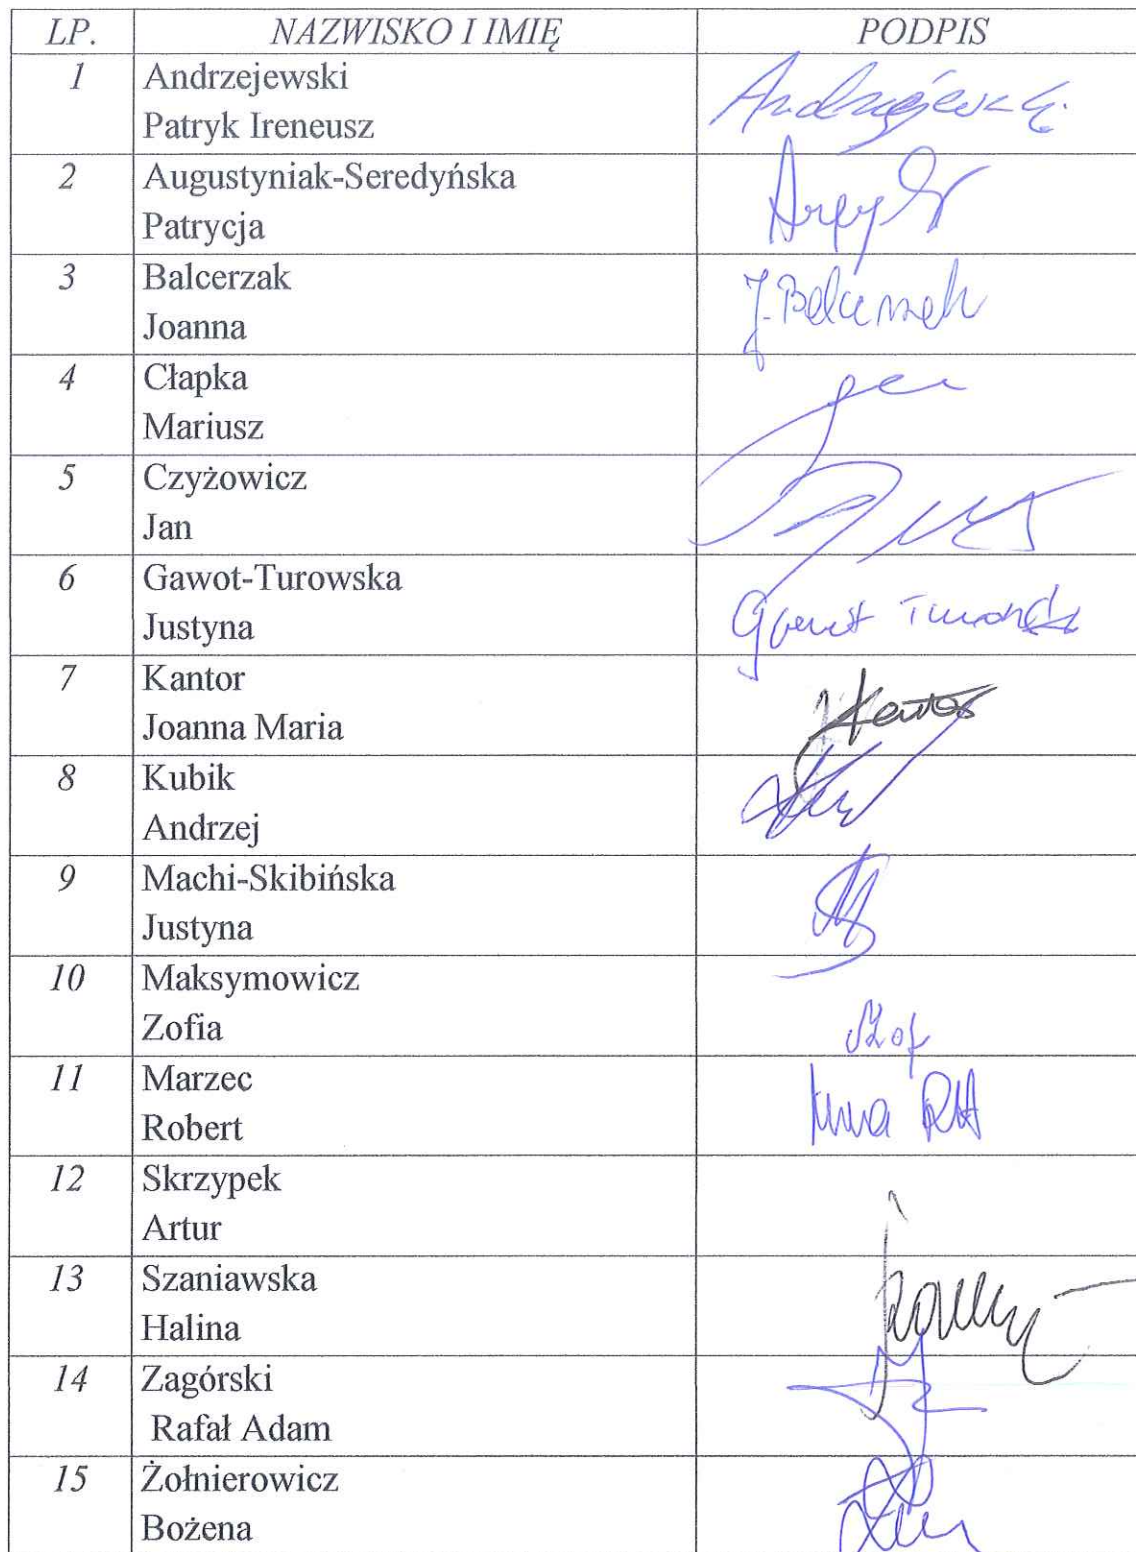 LP. NAZWISKO I IMIĘ PODPIS
1 Andrzejewski
Patryk Ireneusz Andrzejewski
2 Augustyniak-Seredyńska
Patrycja
3 Balcerzak
Joanna J. Balcerzak
4 Cłapka
Mariusz
5 Czyżowicz
Jan
6 Gawot-Turowska
Justyna
7 Kantor
Joanna Maria Kantor
8 Kubik
Andrzej
9 Machi-Skibińska
Justyna
10 Maksymowicz
Zofia
11 Marzec
Robert
12 Skrzypek
Artur
13 Szaniawska
Halina
14 Zagórski
Rafał Adam
15 Żołnierowicz
Bożena